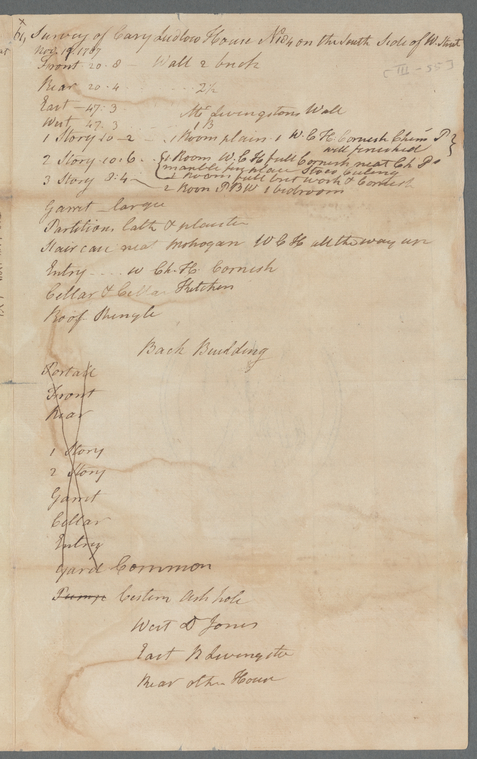 Survey of Cary Ludlow House No 104 on the South Side of W. Street
Nov. 19. 1787
Front 20.8 - Wall 2 brick
[III-55]
Rear 20.4 2½
East - 47:3 Mr Livingstons Wall
West 47.3 1 B
1 Story 10-2 1 Room plain 1 W. C H Cornish Chim P
well finished
2 Story 10:6 1 Room W. C H full Cornish neat Ch P
mantle fireplace
3 Story 9:4 2 Rooms full brest work & Cornish
2 Room P B W 1 bedroom
Garret large
Partitions lath & plaister
Stair case neat Mohogan W C H all the way up
Entry W Ch. H Cornish
Cellar & Cella Kitchen
Roof Shingle
Back Building
Front
Rear
1 Story
2 Story
Garret
Cellar
Entry
Yard Common
Pump Cestern Ash hole
West D Jones
East R Livingsto
Rear other House